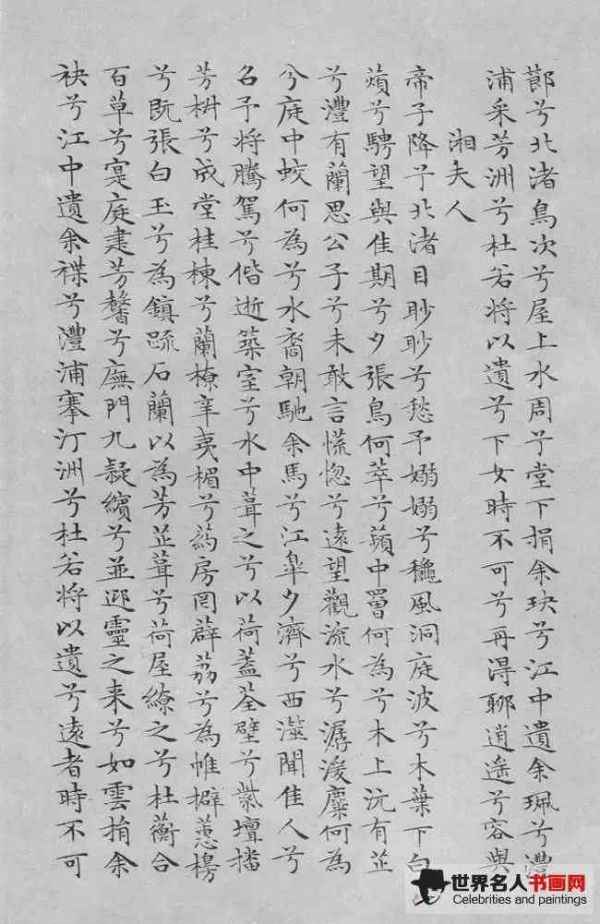 節兮北渚鳥次兮屋上水周予堂下捐余玦兮江中遺余珮兮澧
浦采芳洲兮杜若將以遺兮下女時不可兮再得聊逍遥兮容與
湘夫人
帝子降予北渚目眇眇兮愁予嫋嫋兮穐風洞庭波兮木葉下白
薠兮騁望與佳期兮夕張鳥何萃兮蘋中罾何為兮木上沅有芷
兮澧有蘭思公子兮未敢言慌惚兮遠望觀流水兮潺湲麋何為
兮庭中蛟何為兮水裔朝馳余馬兮江皐夕濟兮西澨聞佳人兮
召予將騰駕兮偕逝築室兮水中葺之兮以荷蓋荃壁兮紫壇播
芳椒兮成堂桂棟兮蘭橑辛夷楣兮葯房罔薜荔兮為帷擗蕙櫋
兮既張白玉兮為鎮疏石蘭以為芳芷葺兮荷屋繚之兮杜蘅合
百草兮寔庭建芳馨兮廡門九疑繽兮並迎靈之来兮如雲捐余
袂兮江中遺余褋兮澧浦搴汀洲兮杜若將以遺兮遠者時不可
世界名人书画网
Celebrities and paintings